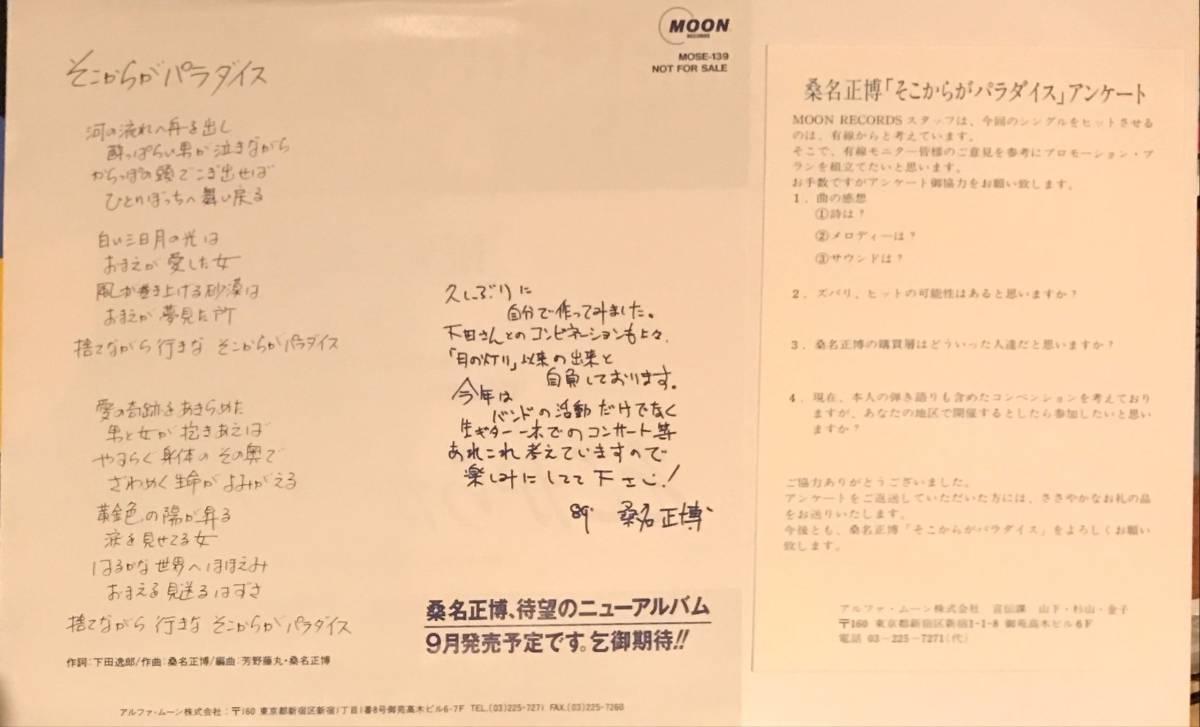 MOON
RECORDS
MOSE-139
NOT FOR SALE
そこからがパラダイス
河の流れへ舟を出し
酔っぱらい男が泣きながら
からっぽの頭でこぎ出せば
ひとりぼっちへ舞い戻る
白い三日月の光は
おまえが愛した女
風が巻き上げる砂漠は
おまえが夢見た所
捨てながら行きな そこからがパラダイス
愛の奇跡をあきらめた
男と女が抱きあえば
やわらく身体のその奥で
ざわめく生命がよみがえる
黄金色の陽が昇る
涙を見せてる女
はるかな世界へほほえみ
おまえを見送るはずさ
捨てながら 行きな そこからがパラダイス
作詞:下田逸郎/作曲:桑名正博/編曲:芳野藤丸・桑名正博
アルファ・ムーン株式会社:〒160 東京都新宿区新宿1丁目1番8号御苑高木ビル6-7F TEL.(03)225-7271 FAX.(03)225-7260
久しぶりに
自分で作ってみました。
下田さんとのコンビネーションも上々、
「月の灯り」以来の出来と
自負しております。
今年は
バンドの活動だけでなく
生ギター一本でのコンサート等
あれこれ考えていますので
楽しみにしてて下さい!
89' 桑名正博
桑名正博、待望のニューアルバム
9月発売予定です。乞御期待!!
桑名正博「そこからがパラダイス」アンケート
MOON RECORDSスタッフは、今回のシングルをヒットさせる
のは、有線からと考えています。
そこで、有線モニター皆様のご意見を参考にプロモーション・プ
ランを組立てたいと思います。
お手数ですがアンケート御協力をお願い致します。
1．曲の感想
①詩は？
②メロディーは？
③サウンドは？
2．ズバリ、ヒットの可能性はあると思いますか？
3．桑名正博の購買層はどういった人達だと思いますか？
4．現在、本人の弾き語りも含めたコンベンションを考えており
ますが、あなたの地区で開催するとしたら参加したいと思い
ますか？
ご協力ありがとうございました。
アンケートをご返送していただいた方には、ささやかなお礼の品
をお送りいたします。
今後とも、桑名正博「そこからがパラダイス」をよろしくお願い
致します。
アルファ・ムーン株式会社 宣伝課 山下・杉山・金子
〒160 東京都新宿区新宿1-1-8 御苑高木ビル6F
電話 03-225-7271(代)